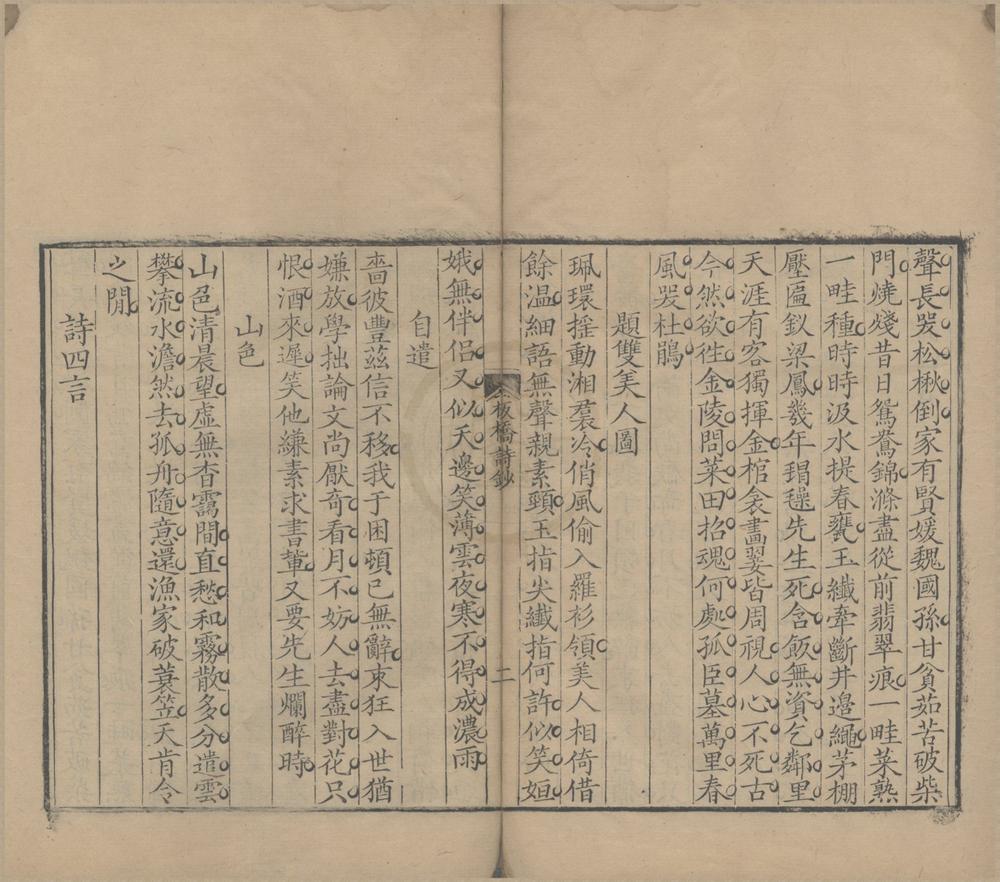 聲長哭松楸倒家有賢媛魏國孫甘貧茹苦破柴
門燒殘昔日鴛鴦錦滌盡從前翡翠痕一畦菜熟
一畦種時時汲水提春甕玉纖牽斷井邊繩茅棚
壓匾釵梁鳳幾年先生死含飯無資乞鄰里
天涯有客獨揮金棺衾畫翣皆周視人心不死古
今然欲徃金陵問菜田招魂何處孤臣墓萬里春
風哭杜鵑
題雙美人圖
珮環揺動湘裠冷俏風偷入羅衫領美人相倚借
餘温細語無聲親素頸玉指尖纖指何許似笑姮
板橋詩鈔
二
娥無伴侶又似天邊笑薄雲夜寒不得成濃雨
自遣
嗇彼豐茲信不移我于困頓已無辭束狂入世猶
嫌放學拙論文尚厭奇看月不妨人去盡對花只
恨酒來遲笑他縑素求書輩又要先生爛醉時
山色
山色清晨望虛無杳靄間直愁和霧散多分遣雲
攀流水澹然去孤舟隨意還漁家破蓑笠天肯令
之閒
詩四言